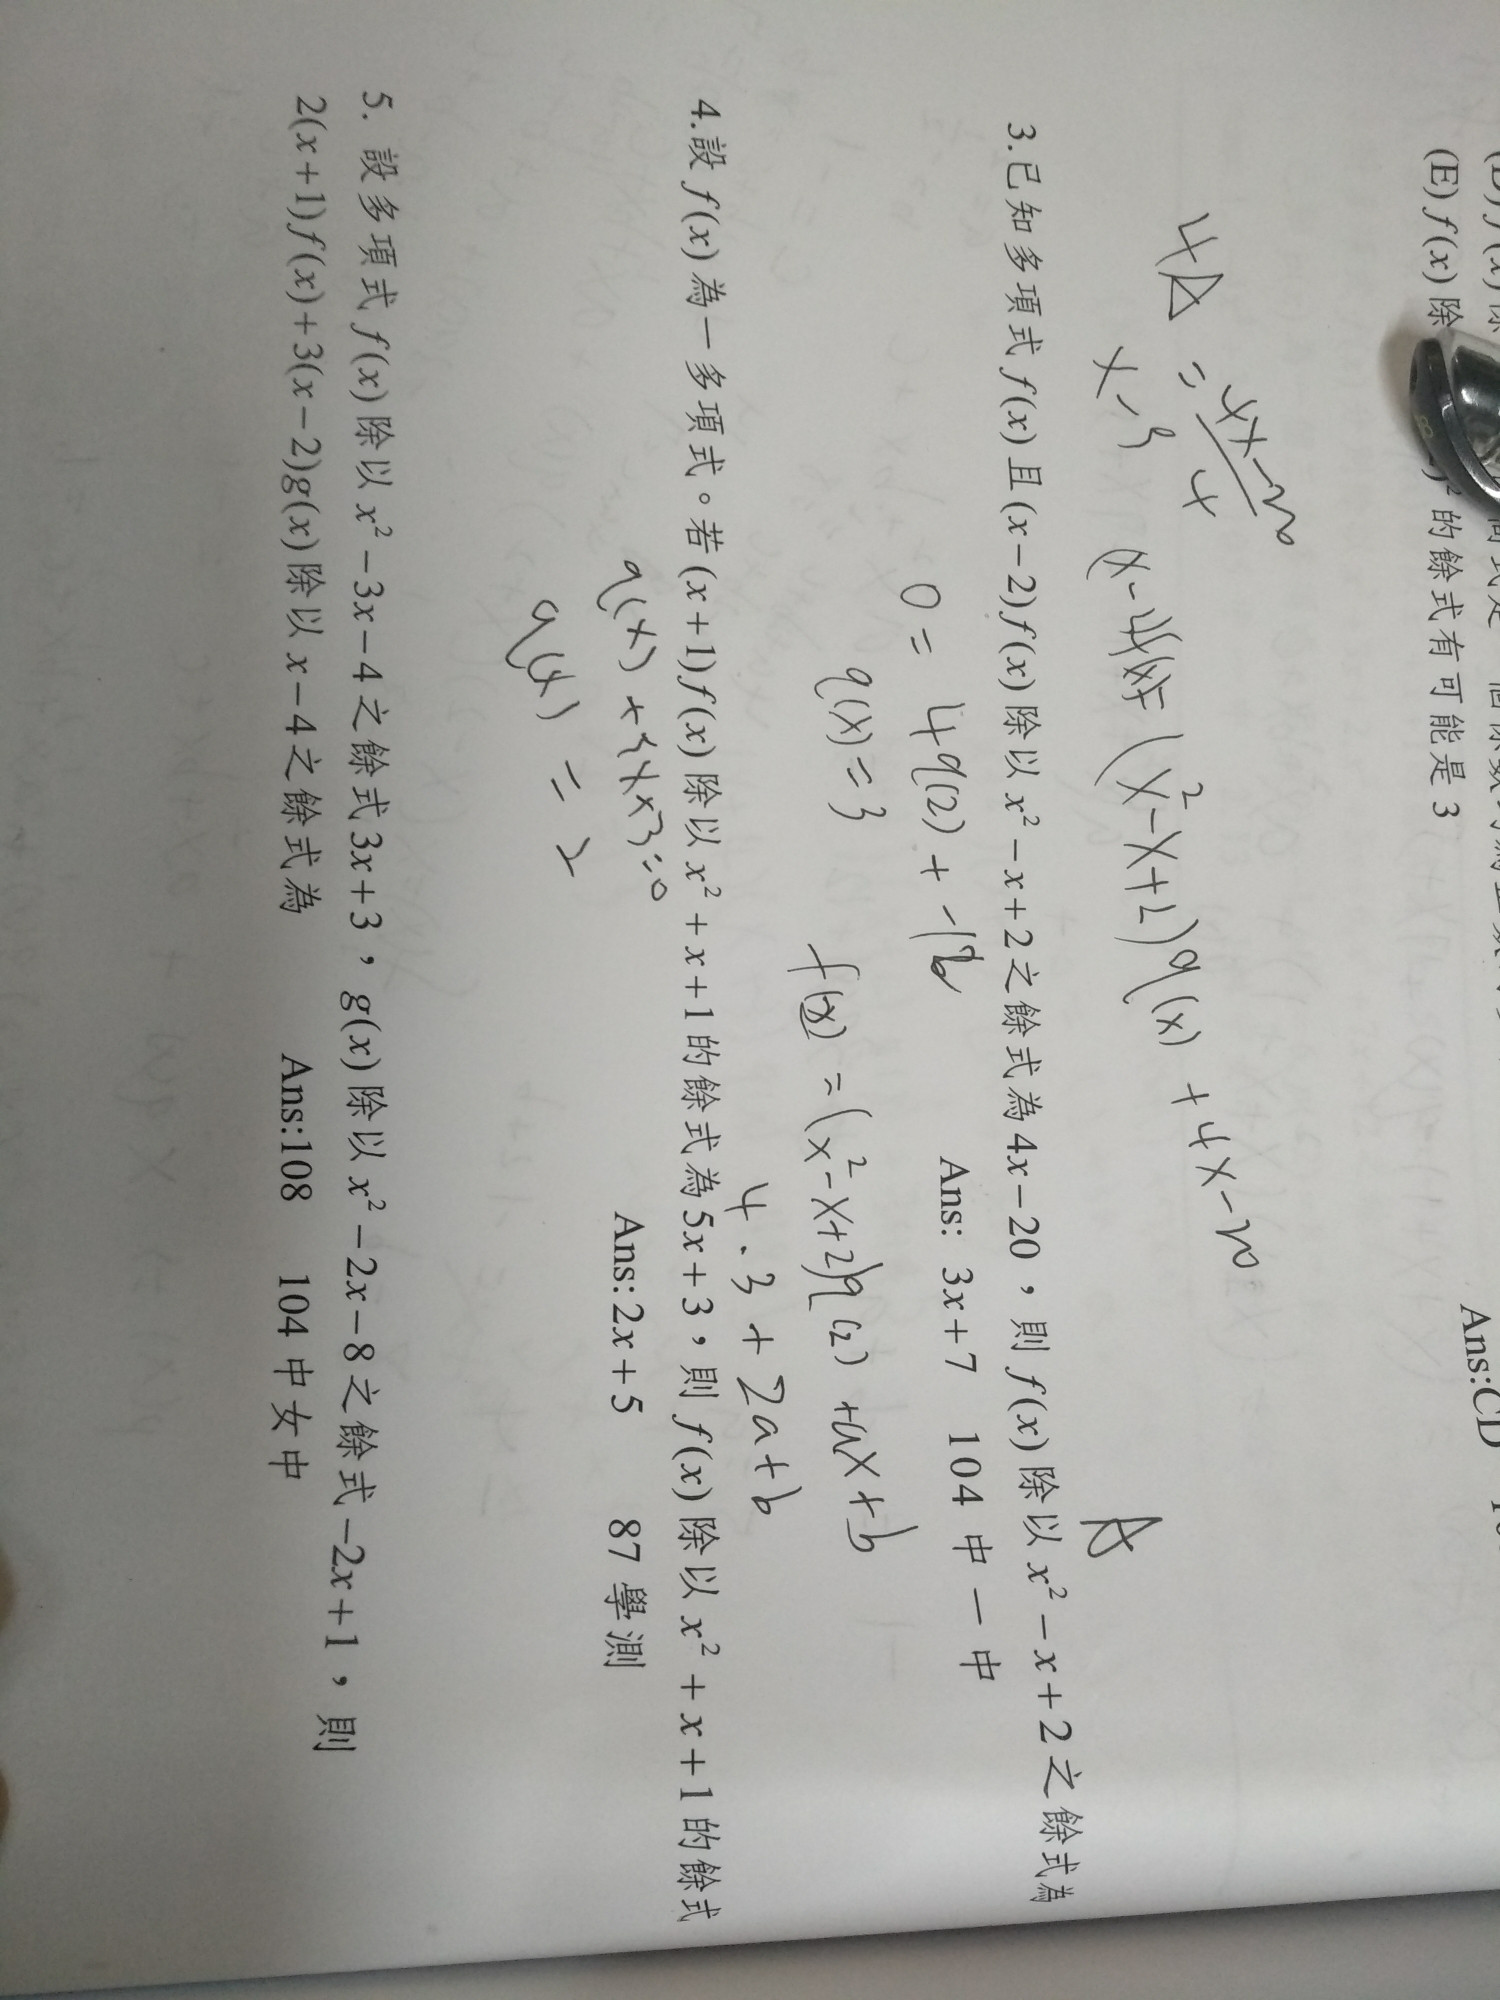 (E) f(x) 除
)² 的餘式有可能是 3
Ans:CD
4
= 4x-20 / 4
x-3
+4x-20
3.已知多項式 f(x) 且 (x-2)f(x) 除以 x²-x+2 之餘式為 4x-20，則 f(x) 除以 x²-x+2 之餘式為
Ans: 3x+7 104 中一中
0 = 4q(2) + -12
q(x) = 3
f(x) = (x²-x+2)q(2) +ax+b
4·3 + 2a+b
4.設 f(x) 為一多項式。若 (x+1)f(x) 除以 x²+x+1 的餘式為 5x+3，則 f(x) 除以 x²+x+1 的餘式
Ans:2x+5 87 學測
q(x) = 2
5. 設多項式 f(x) 除以 x²-3x-4 之餘式 3x+3，g(x) 除以 x²-2x-8 之餘式 -2x+1，則
2(x+1)f(x)+3(x-2)g(x) 除以 x-4 之餘式為 Ans:108 104 中女中